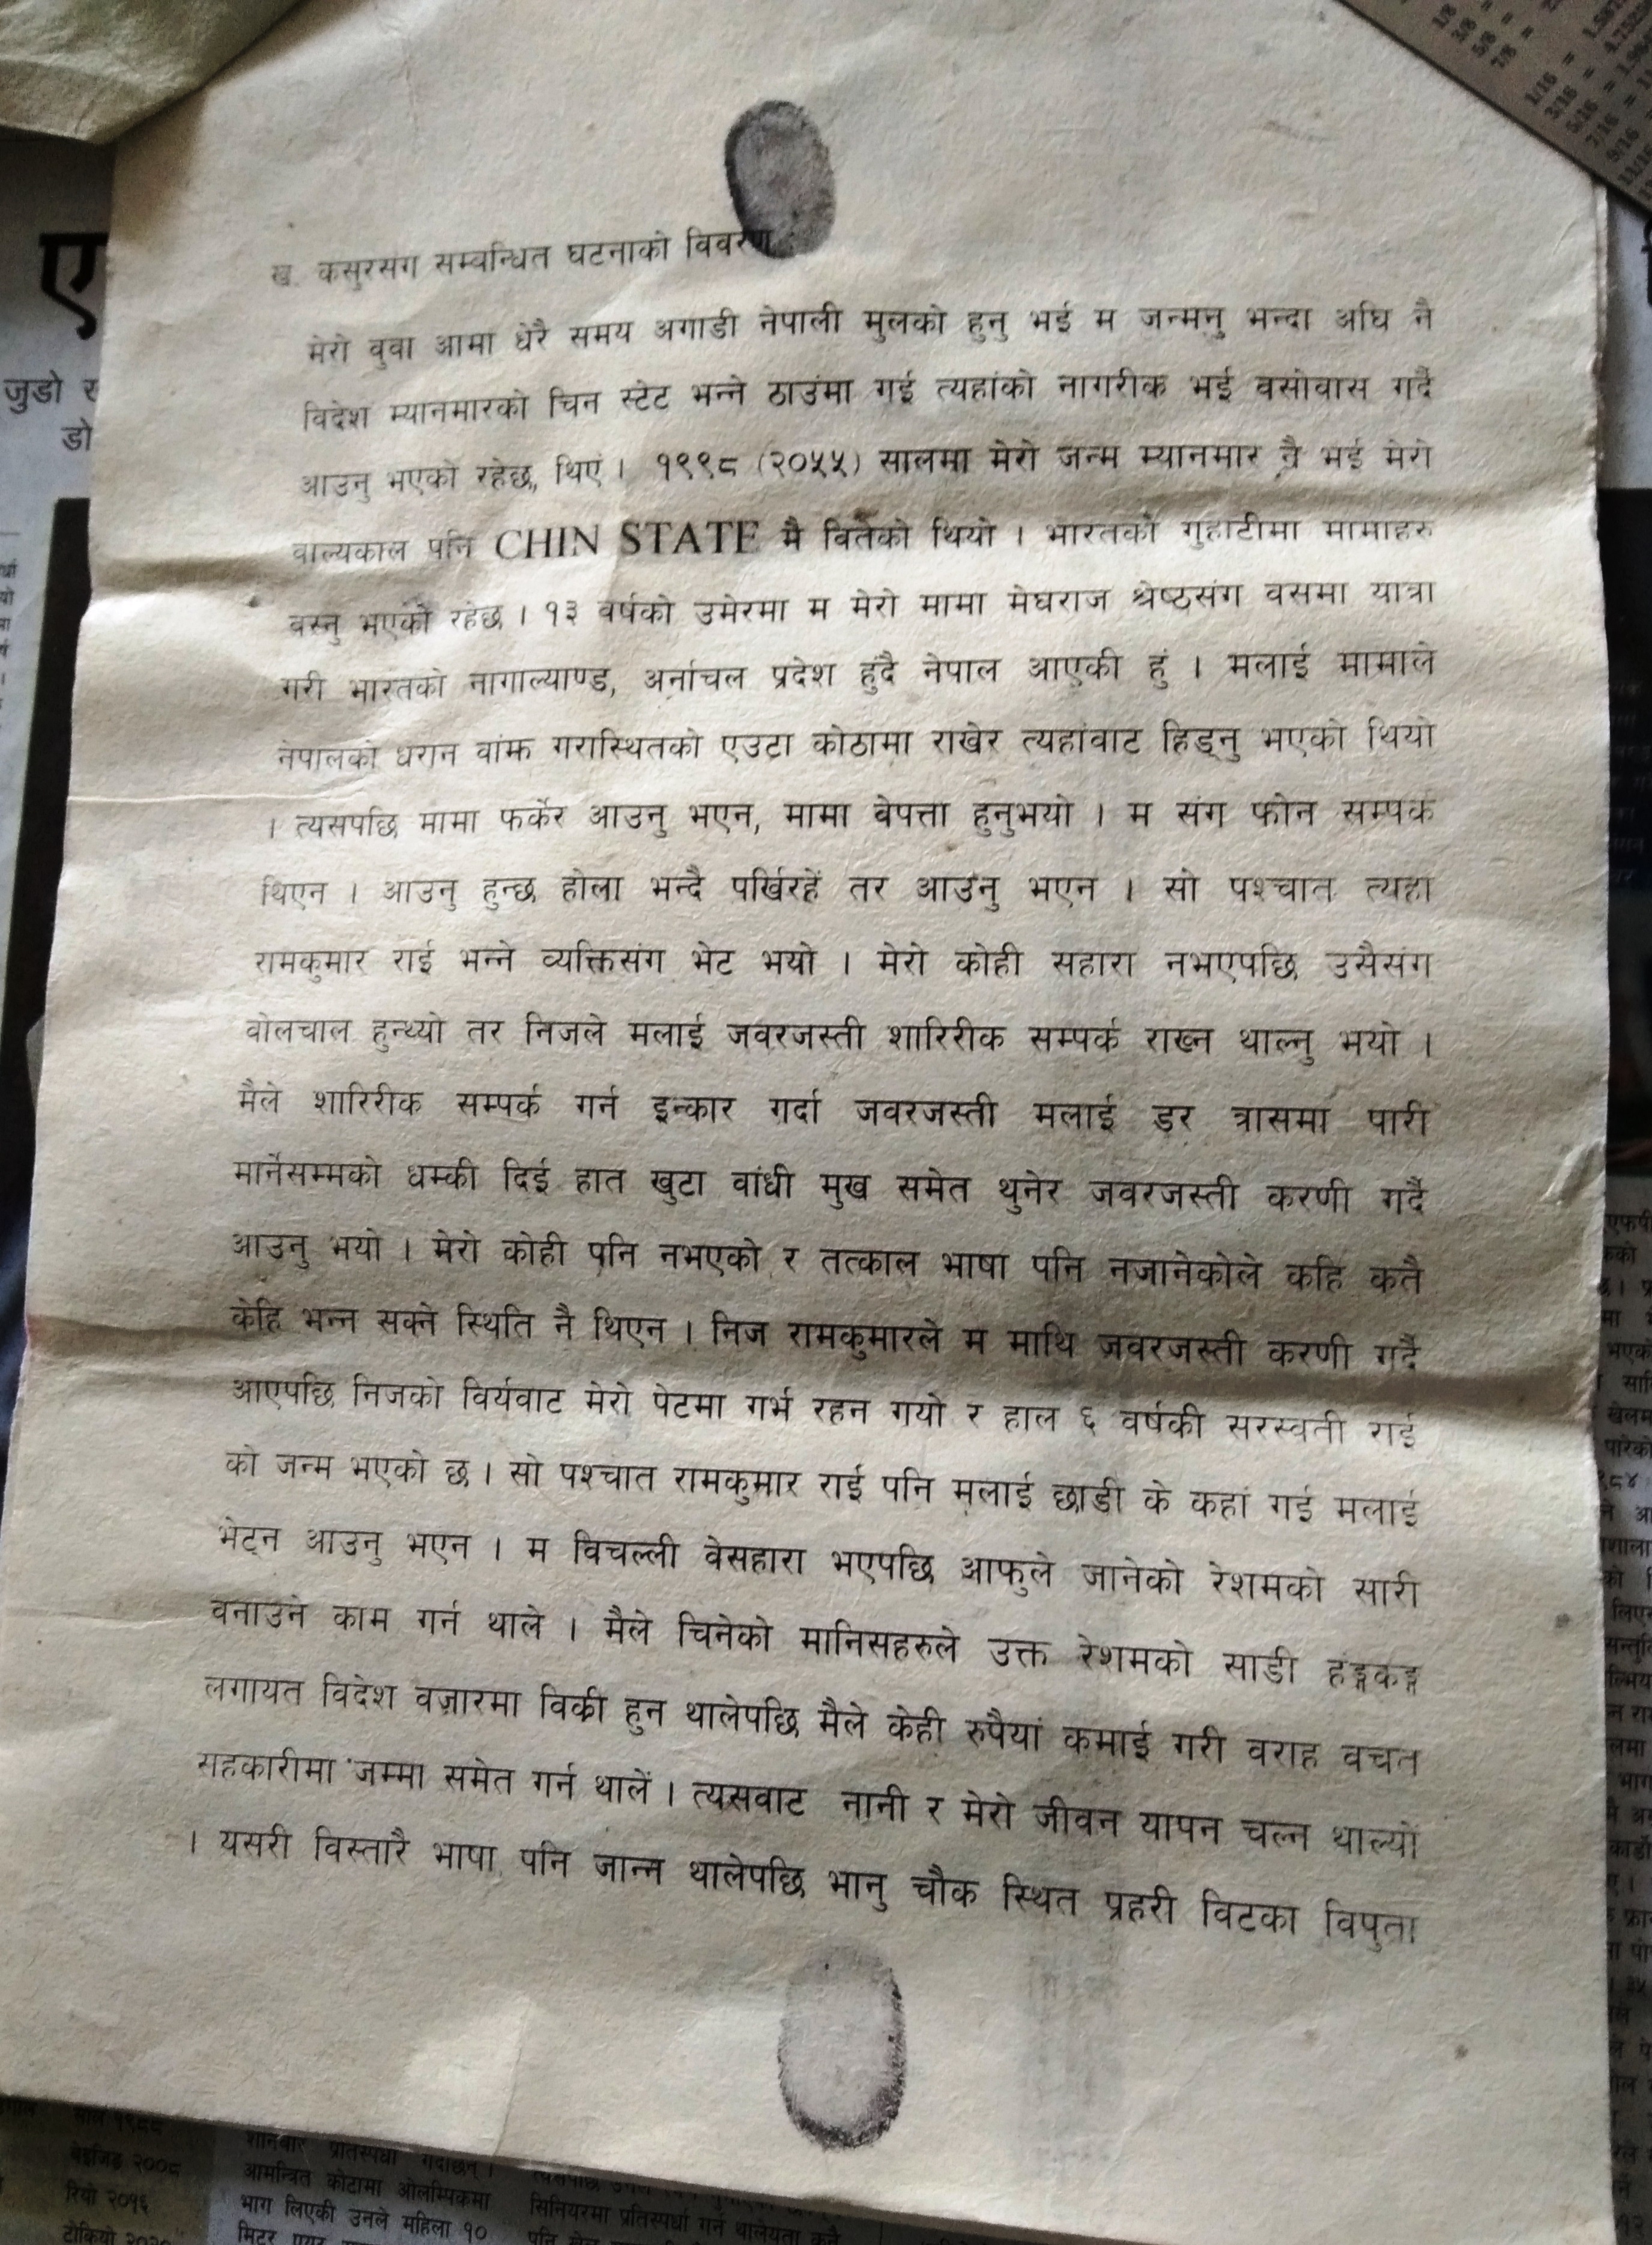 ख. कसुरसंग सम्वन्धित घटनाको विवरण :
मेरो वुवा आमा धेरै समय अगाडी नेपाली मुलको हुनु भई म जन्मनु भन्दा अघि नै
विदेश म्यानमारको चिन स्टेट भन्ने ठाउंमा गई त्यहांको नागरीक भई वसोवास गर्दै
आउनु भएको रहेछ, थिएं । १९९८ (२०५५) सालमा मेरो जन्म म्यानमार नै भई मेरो
वाल्यकाल पनि CHIN STATE मै वितेको थियो । भारतको गुहाटीमा मामाहरु
वस्नु भएको रहेछ । १३ वर्षको उमेरमा म मेरो मामा मेघराज श्रेष्ठसंग वसमा यात्रा
गरी भारतको नागाल्याण्ड, अर्नाचल प्रदेश हुंदै नेपाल आएकी हुं । मलाई मामाले
नेपालको धरान वांझ गरास्थितको एउटा कोठामा राखेर त्यहांवाट हिड्नु भएको थियो
। त्यसपछि मामा फर्केर आउनु भएन, मामा वेपत्ता हुनुभयो । म संग फोन सम्पर्क
थिएन । आउनु हुन्छ होला भन्दै पर्खिरहें तर आउनु भएन । सो पश्चात त्यहा
रामकुमार राई भन्ने व्यक्तिसंग भेट भयो । मेरो कोही सहारा नभएपछि उसैसंग
वोलचाल हुन्थ्यो तर निजले मलाई जवरजस्ती शारिरीक सम्पर्क राख्न थाल्नु भयो ।
मैले शारिरीक सम्पर्क गर्न इन्कार गर्दा जवरजस्ती मलाई डर त्रासमा पारी
मार्नेसम्मको धम्की दिई हात खुटा वांधी मुख समेत थुनेर जवरजस्ती करणी गर्दै
आउनु भयो । मेरो कोही पनि नभएको र तत्काल भाषा पनि नजानेकोले कहि कतै
केहि भन्न सक्ने स्थिति नै थिएन । निज रामकुमारले म माथि जवरजस्ती करणी गर्दै
आएपछि निजको विर्यवाट मेरो पेटमा गर्भ रहन गयो र हाल ६ वर्षकी सरस्वती राई
को जन्म भएको छ । सो पश्चात रामकुमार राई पनि मलाई छाडी के कहां गई मलाई
भेट्न आउनु भएन । म विचल्ली वेसहारा भएपछि आफुले जानेको रेशमको सारी
वनाउने काम गर्न थाले । मैले चिनेको मानिसहरुले उक्त रेशमको साडी हङ्गकङ्ग
लगायत विदेश वजारमा विक्री हुन थालेपछि मैले केही रुपैयां कमाई गरी वराह वचत
सहकारीमा जम्मा समेत गर्न थालें । त्यसवाट नानी र मेरो जीवन यापन चल्न थाल्यो
। यसरी विस्तारै भाषा पनि जान्न थालेपछि भानु चौक स्थित प्रहरी विटका विपुता
एफपी
जुडो
डो
साल १९८८
बेइजिङ २००८
रियो २०१६
टोकियो २०२०
शनिबार प्रतिस्पर्धा गर्दैछिन् ।
आमन्त्रित कोटामा ओलम्पिकमा
भाग लिएकी उनले महिला ९०
सिनियरमा प्रतिस्पर्धा गर्न थालेयता कुनै
1/16 =
3/16 =
5/16 =
7/16 =
9/16
11/16